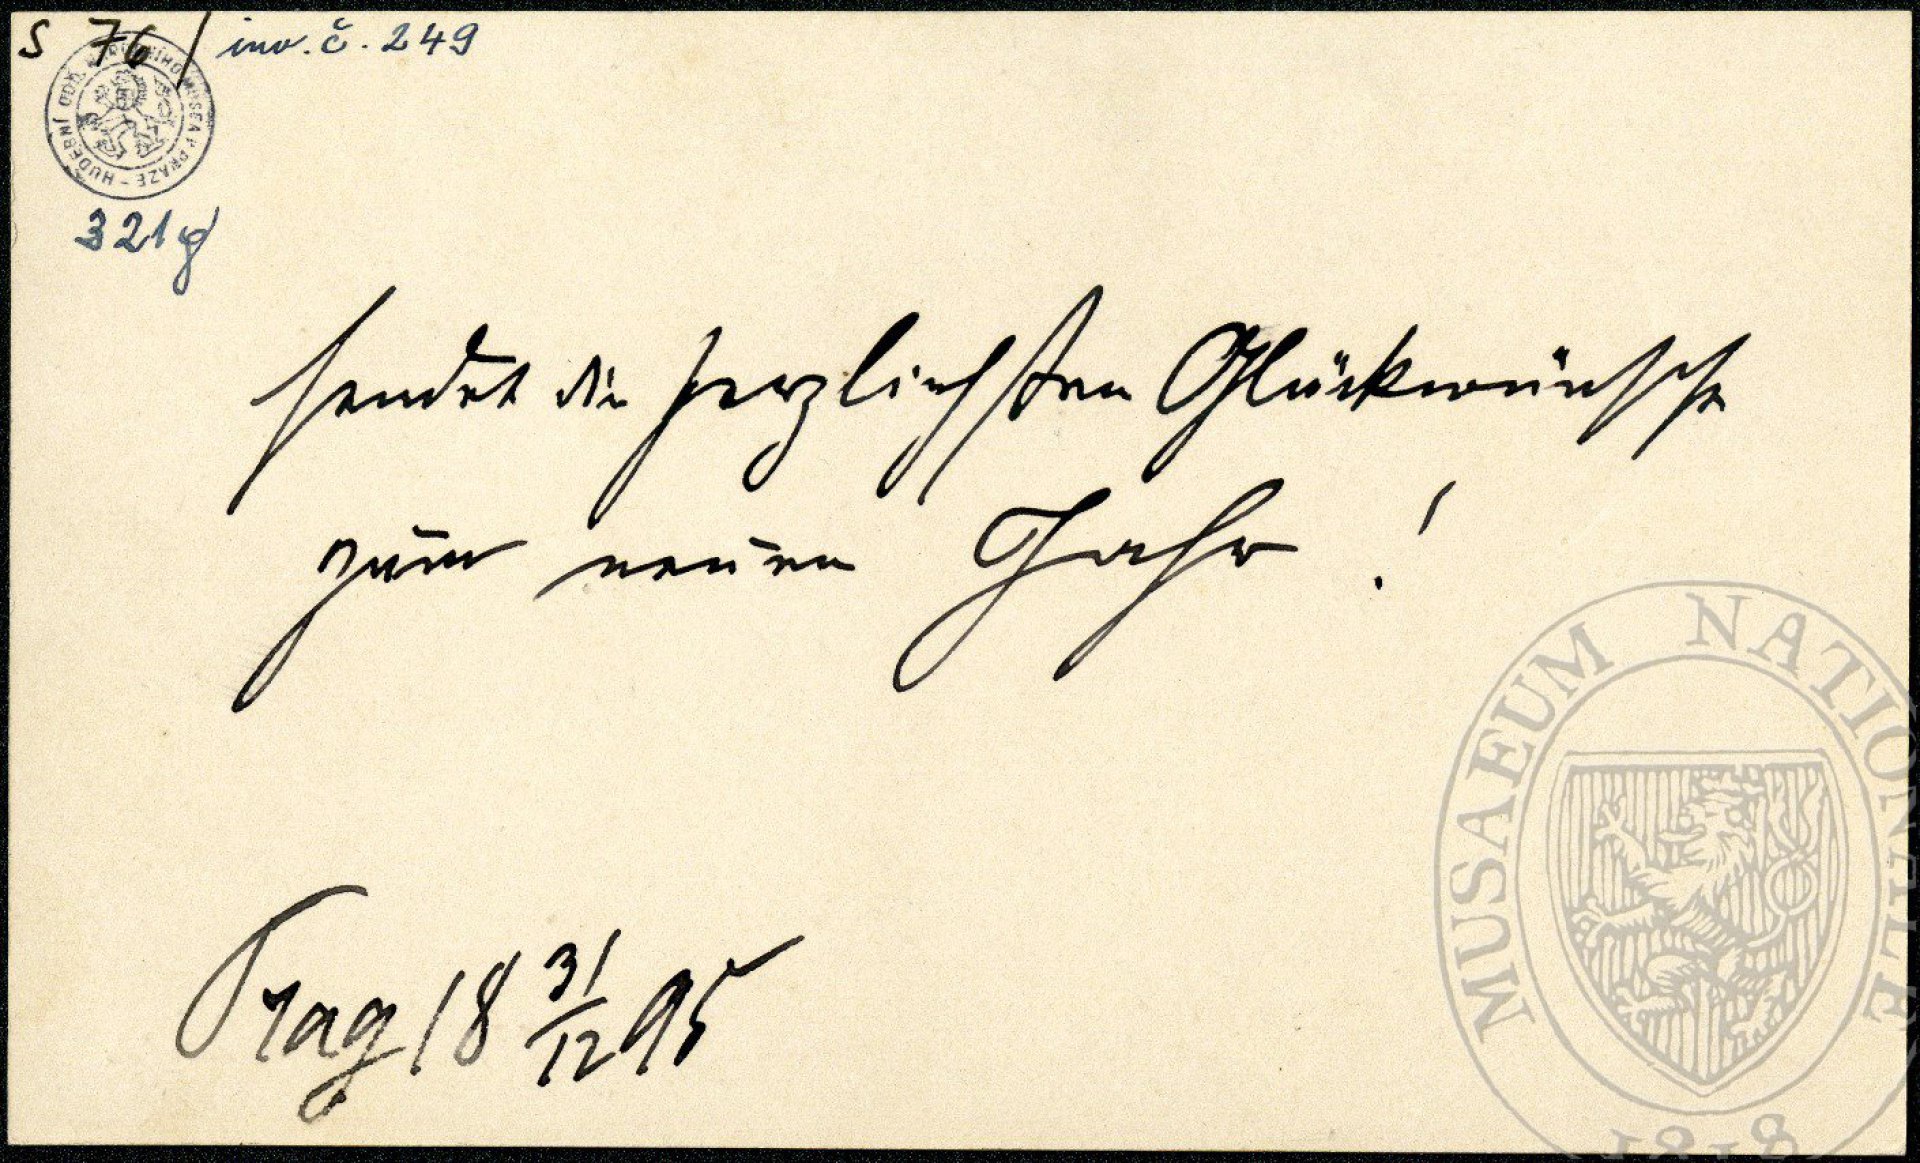 S 76/ inv. č. 249
HUDEBNÍ ODD. NÁRODNÍHO MUSEA V PRAZE -
321g
sendet die herzlichsten Glückwünsche
zum neuen Jahr !
Prag 18 31/12 95
MUSAEUM NATIONALE
1818